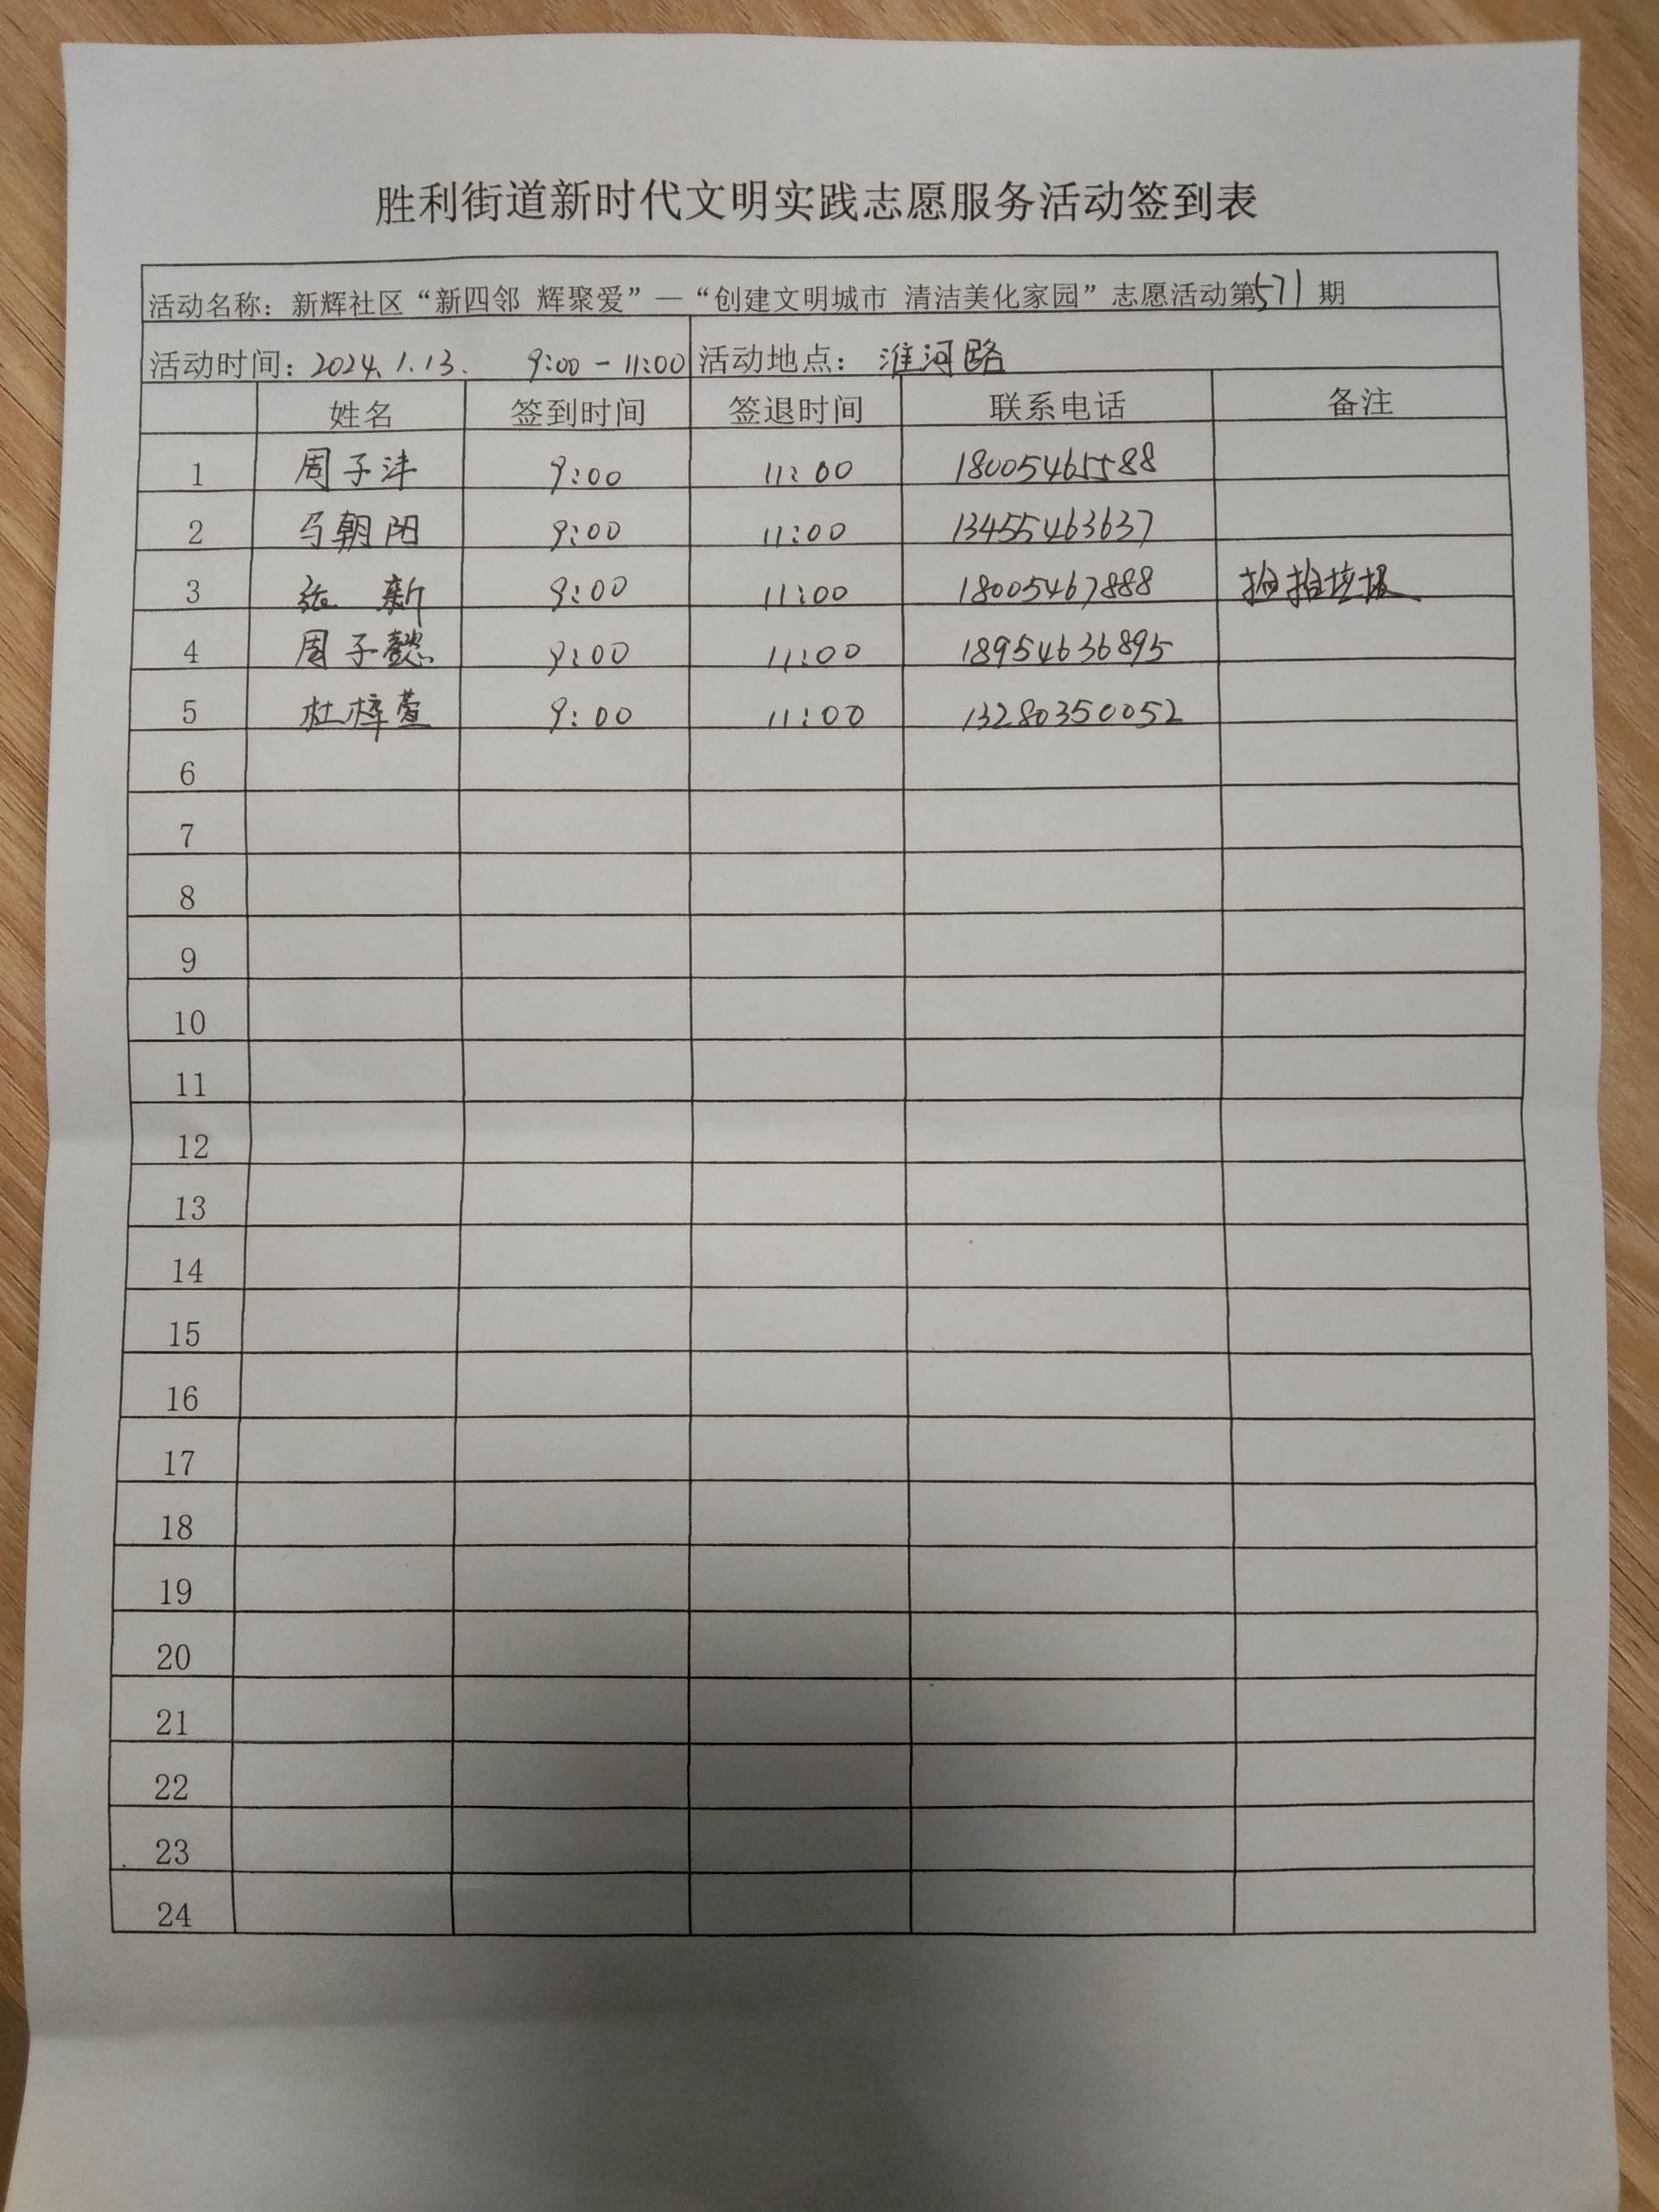 胜利街道新时代文明实践志愿服务活动签到表
活动名称：新辉社区“新四邻 辉聚爱”—“创建文明城市 清洁美化家园”志愿活动第571期
活动时间：2024.1.13. 9:00-11:00 活动地点：淮河路
姓名 签到时间 签退时间 联系电话 备注
1 周子沣 9:00 11:00 18005465588
2 马朝阳 9:00 11:00 13455463637
3 张新 9:00 11:00 18005467888 捡拾垃圾
4 周子懿 9:00 11:00 18954636895
5 杜梓萱 9:00 11:00 13280350052
6
7
8
9
10
11
12
13
14
15
16
17
18
19
20
21
22
23
24